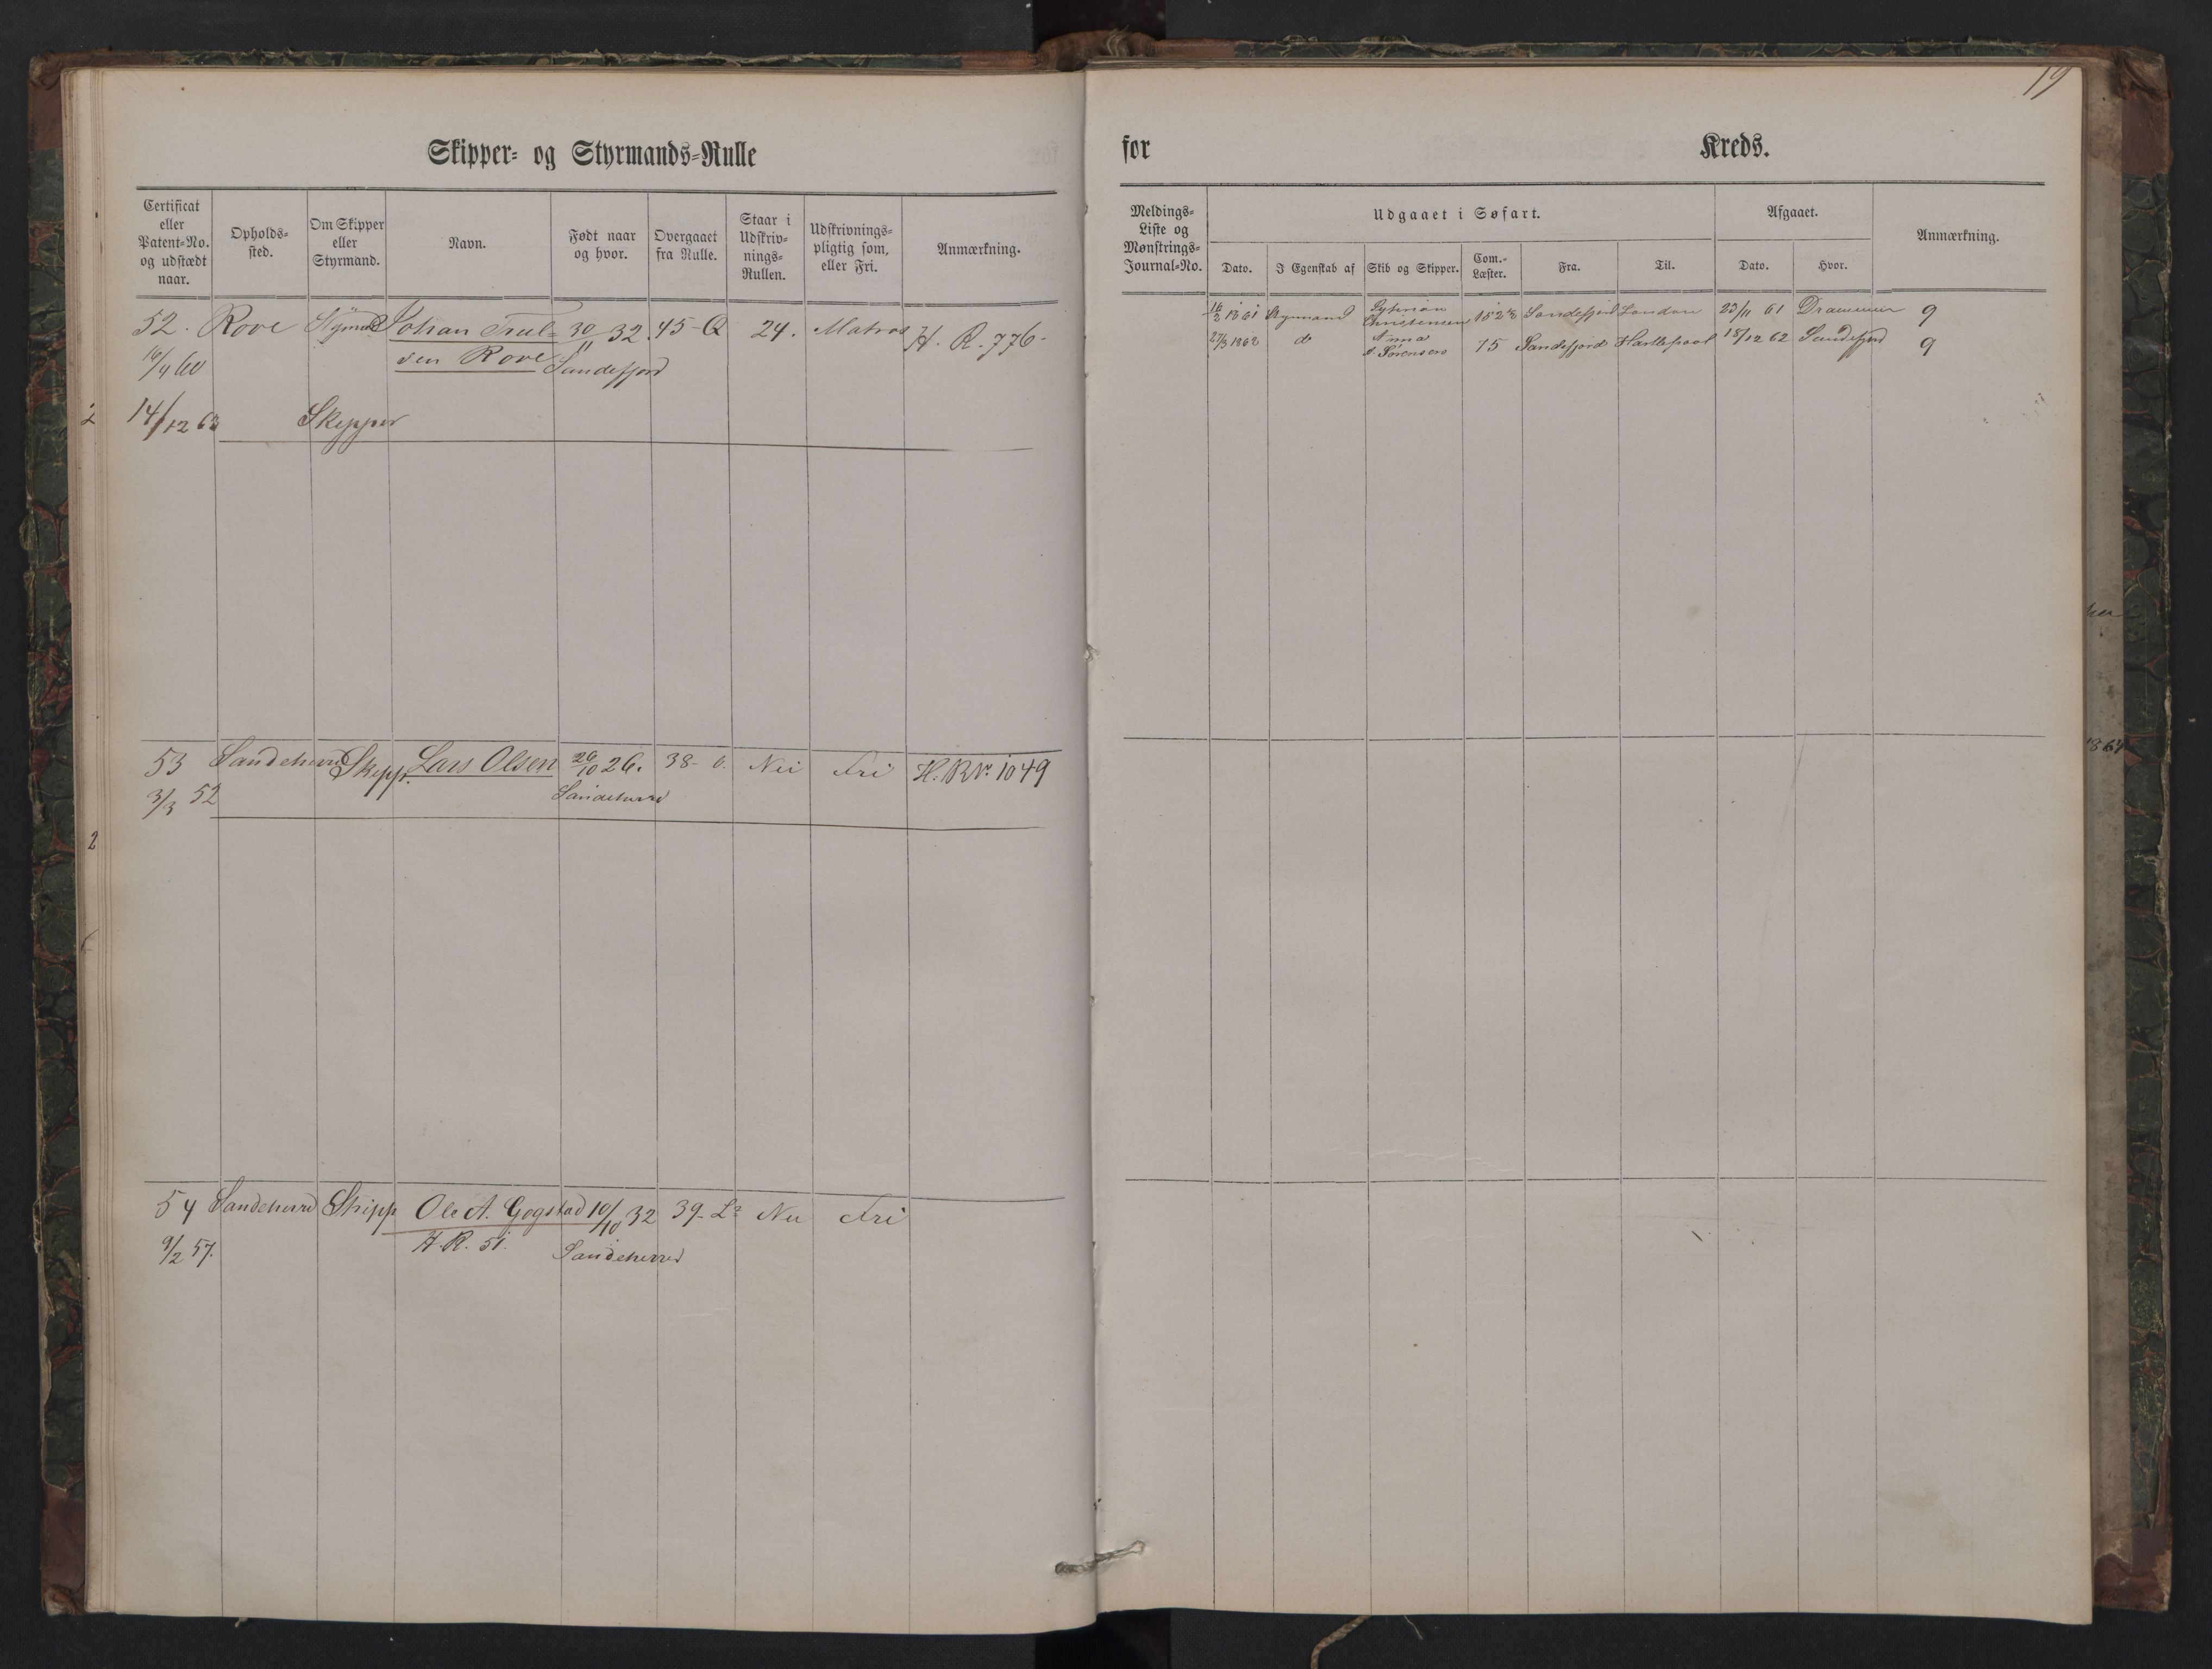 19
Skipper- og Styrmands-Rulle
for Kreds.
Certificat eller Patent-No. og udstædt naar.
Opholds- sted.
Om Skipper eller Styrmand.
Navn.
Født naar og hvor.
Overgaaet fra Rulle.
Staar i Udskriv- nings- Rullen.
Udskrivnings- pligtig som, eller Fri.
Anmærkning.
Meldings- Liste og Mønstrings- Journal-No.
Udgaaet i Søfart.
Dato.
I Egenskab af
Skib og Skipper.
Com.- Læster.
Fra.
Til.
Afgaaet.
Dato.
Hvor.
Anmærkning.
52. Rove Stymd Johan Trul- 30 32. 45-Q 24. Matros H. R. 776-
16/4 60 sen Rove 11 Sandefjord
14/12 63 Skipper
1861 Stymand Christensen Sandefjord London 23/11 61 Drammen 9
27/3 1862 do Anna Sørensen 75 Sandefjord Hartlepool 18/12 62 Sandefjord 9
53 Sandeherred Skipp. Lars Olsen 26/10 26. 38- Nei Fri H. R No. 1049
3/3 52 Sandeherred
54 Sandeherred Skipp Ole A. Gogstad 10/10 32 39- La Nei Fri
9/2 57. H. R. 51. Sandeherred